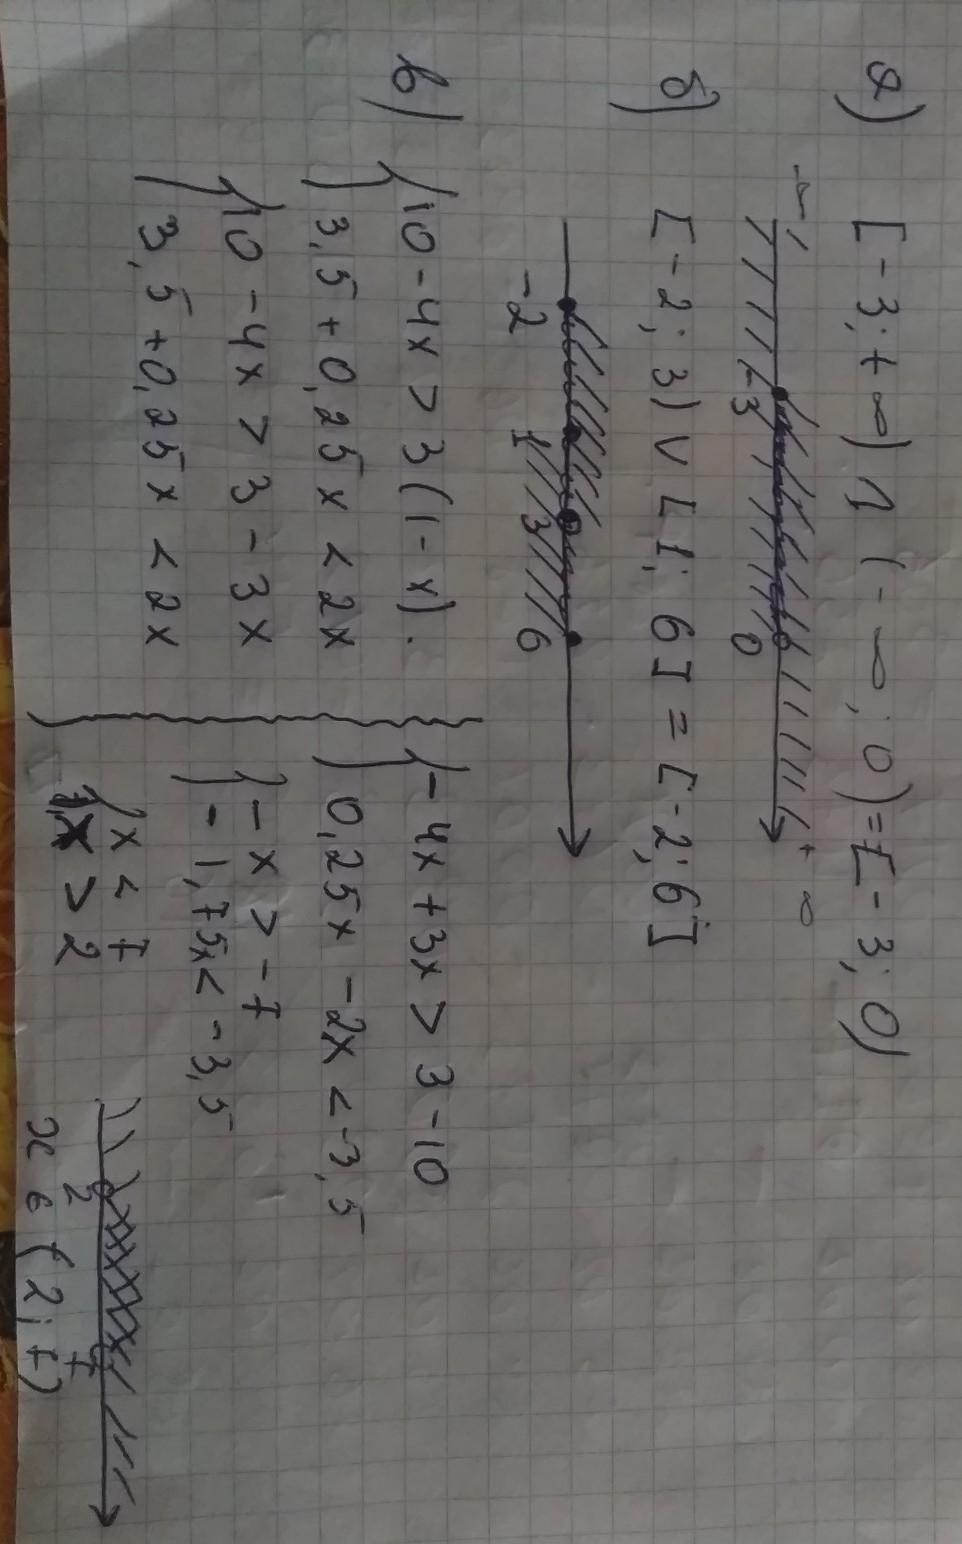 а) [-3; +∞) ∩ (-∞; 0) = [-3; 0)
-∞ -3 0 +∞
б) [-2; 3) ∪ [1; 6] = [-2; 6]
-2 1 3 6
в) { 10 - 4x > 3(1 - x).
3,5 + 0,25x < 2x
{ 10 - 4x > 3 - 3x
3,5 + 0,25x < 2x
{ -4x + 3x > 3 - 10
0,25x - 2x < -3,5
{ -x > -7
-1,75x < -3,5
{ x < 7
x > 2
2 7
x ∈ (2; 7)